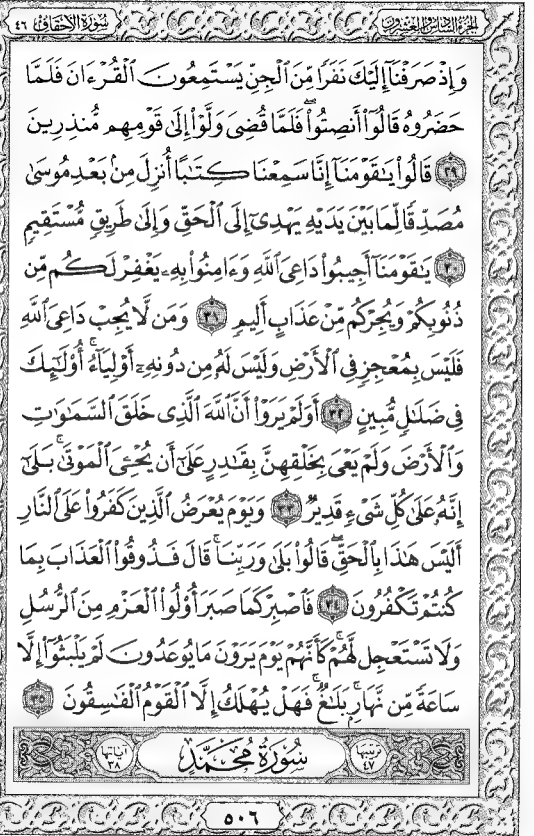 الجزء السادس والعشرون سورة الأحقاف ٤٦
وَإِذْ صَرَفْنَآ إِلَيْكَ نَفَرًا مِّنَ ٱلْجِنِّ يَسْتَمِعُونَ ٱلْقُرْءَانَ فَلَمَّا
حَضَرُوهُ قَالُوٓا۟ أَنصِتُوا۟ ۖ فَلَمَّا قُضِىَ وَلَّوْا۟ إِلَىٰ قَوْمِهِم مُّنذِرِينَ
٢٩ قَالُوا۟ يَـٰقَوْمَنَآ إِنَّا سَمِعْنَا كِتَـٰبًا أُنزِلَ مِنۢ بَعْدِ مُوسَىٰ
مُصَدِّقًا لِّمَا بَيْنَ يَدَيْهِ يَهْدِىٓ إِلَى ٱلْحَقِّ وَإِلَىٰ طَرِيقٍ مُّسْتَقِيمٍ
٣٠ يَـٰقَوْمَنَآ أَجِيبُوا۟ دَاعِىَ ٱللَّهِ وَءَامِنُوا۟ بِهِۦ يَغْفِرْ لَكُم مِّن
ذُنُوبِكُمْ وَيُجِرْكُم مِّنْ عَذَابٍ أَلِيمٍ ٣١ وَمَن لَّا يُجِبْ دَاعِىَ ٱللَّهِ
فَلَيْسَ بِمُعْجِزٍ فِى ٱلْأَرْضِ وَلَيْسَ لَهُۥ مِن دُونِهِۦٓ أَوْلِيَآءُ ۚ أُو۟لَـٰٓئِكَ
فِى ضَلَـٰلٍ مُّبِينٍ ٣٢ أَوَلَمْ يَرَوْا۟ أَنَّ ٱللَّهَ ٱلَّذِى خَلَقَ ٱلسَّمَـٰوَٰتِ
وَٱلْأَرْضَ وَلَمْ يَعْىَ بِخَلْقِهِنَّ بِقَـٰدِرٍ عَلَىٰٓ أَن يُحْـِۧىَ ٱلْمَوْتَىٰ ۚ بَلَىٰٓ
إِنَّهُۥ عَلَىٰ كُلِّ شَىْءٍ قَدِيرٌ ٣٣ وَيَوْمَ يُعْرَضُ ٱلَّذِينَ كَفَرُوا۟ عَلَى ٱلنَّارِ
أَلَيْسَ هَـٰذَا بِٱلْحَقِّ ۖ قَالُوا۟ بَلَىٰ وَرَبِّنَا ۚ قَالَ فَذُوقُوا۟ ٱلْعَذَابَ بِمَا
كُنتُمْ تَكْفُرُونَ ٣٤ فَٱصْبِرْ كَمَا صَبَرَ أُو۟لُوا۟ ٱلْعَزْمِ مِنَ ٱلرُّسُلِ
وَلَا تَسْتَعْجِل لَّهُمْ ۚ كَأَنَّهُمْ يَوْمَ يَرَوْنَ مَا يُوعَدُونَ لَمْ يَلْبَثُوٓا۟ إِلَّا
سَاعَةً مِّن نَّهَارٍۭ ۚ بَلَـٰغٌ ۚ فَهَلْ يُهْلَكُ إِلَّا ٱلْقَوْمُ ٱلْفَـٰسِقُونَ ٣٥
ترتيبها ٤٧ سُورَةُ مُحَمَّدٍ آياتها ٣٨
٥٠٦